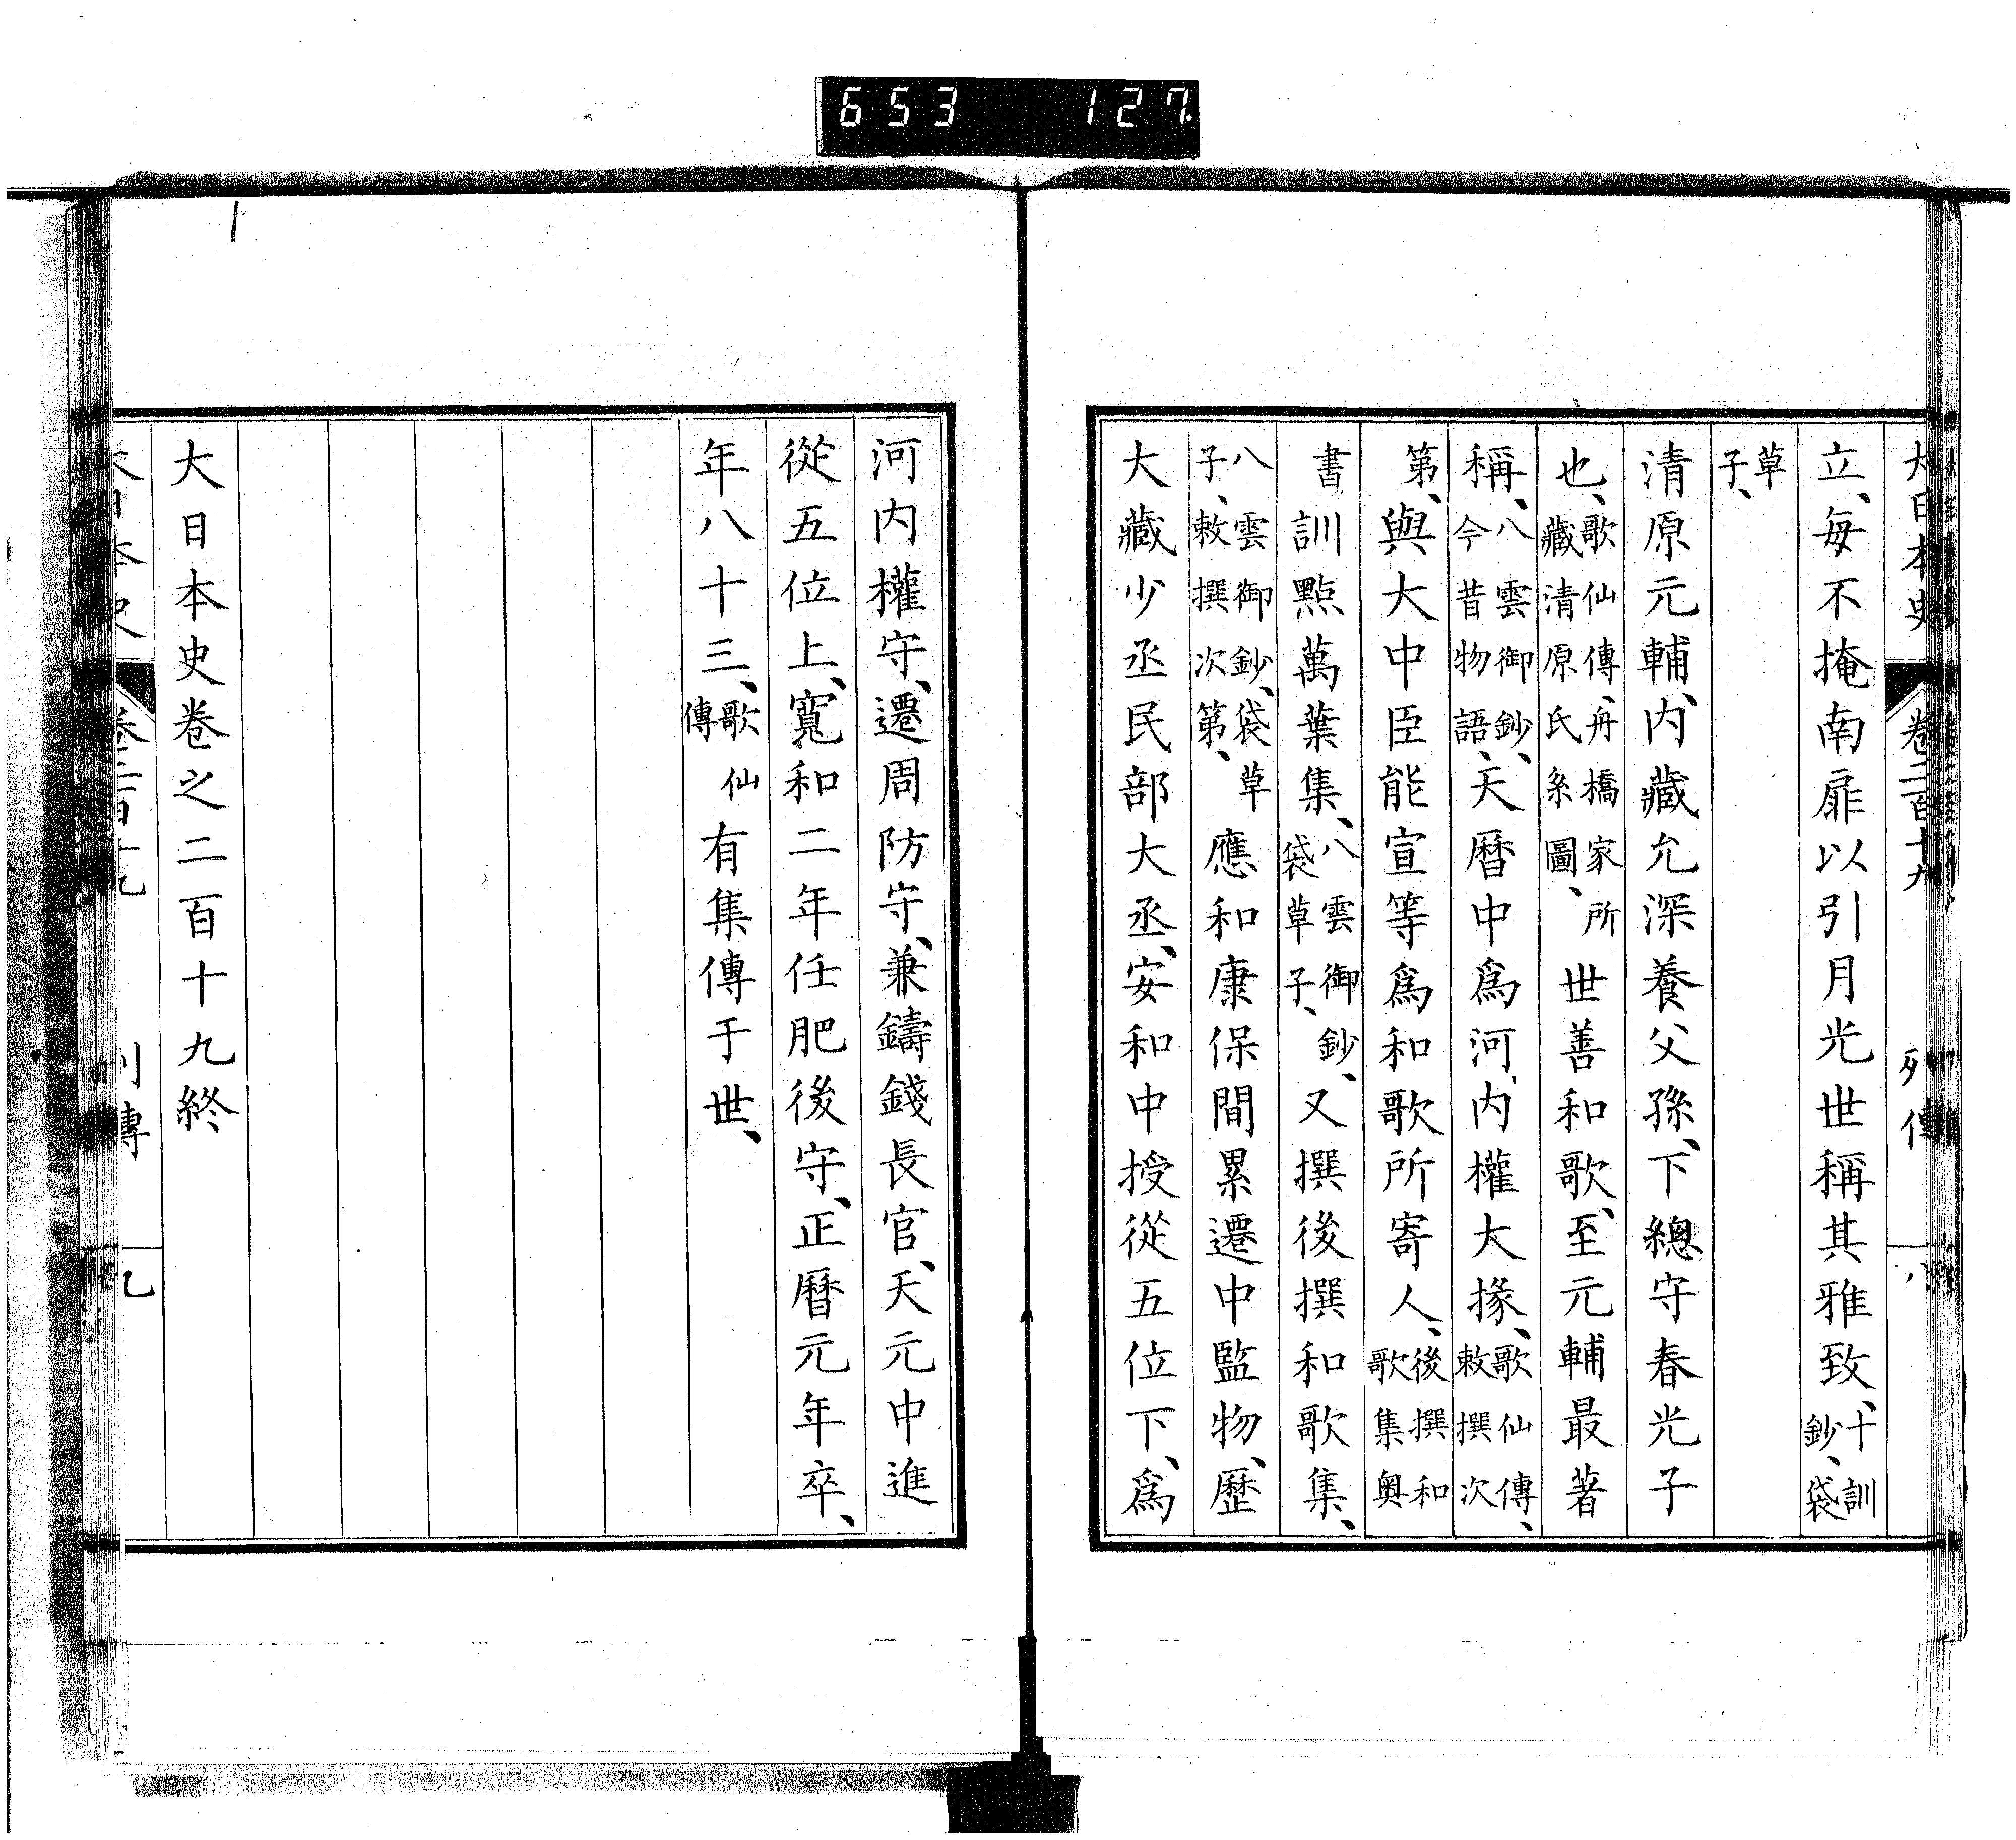 653 127.
大日本史 卷二百十九 列傳 八
立、每不掩南扉以引月光世稱其雅致、十訓鈔、袋
草子、
清原元輔、內藏允深養父孫、下總守春光子
也、歌仙傳、舟橋家所藏清原氏系圖、世善和歌、至元輔最著
稱、八雲御鈔、今昔物語、天曆中爲河內權大掾、歌仙傳、敕撰次
第、與大中臣能宣等爲和歌所寄人、後撰和歌集奧
書訓點萬葉集、八雲御鈔、袋草子、又撰後撰和歌集、
八雲御鈔、袋草子、敕撰次第、應和康保間累遷中監物、歷
大藏少丞民部大丞、安和中授從五位下、爲
河內權守、遷周防守、兼鑄錢長官、天元中進
從五位上、寬和二年任肥後守、正曆元年卒、
年八十三、歌仙傳有集傳于世、
大日本史卷之二百十九終
大日本史 卷二百十九 列傳 九